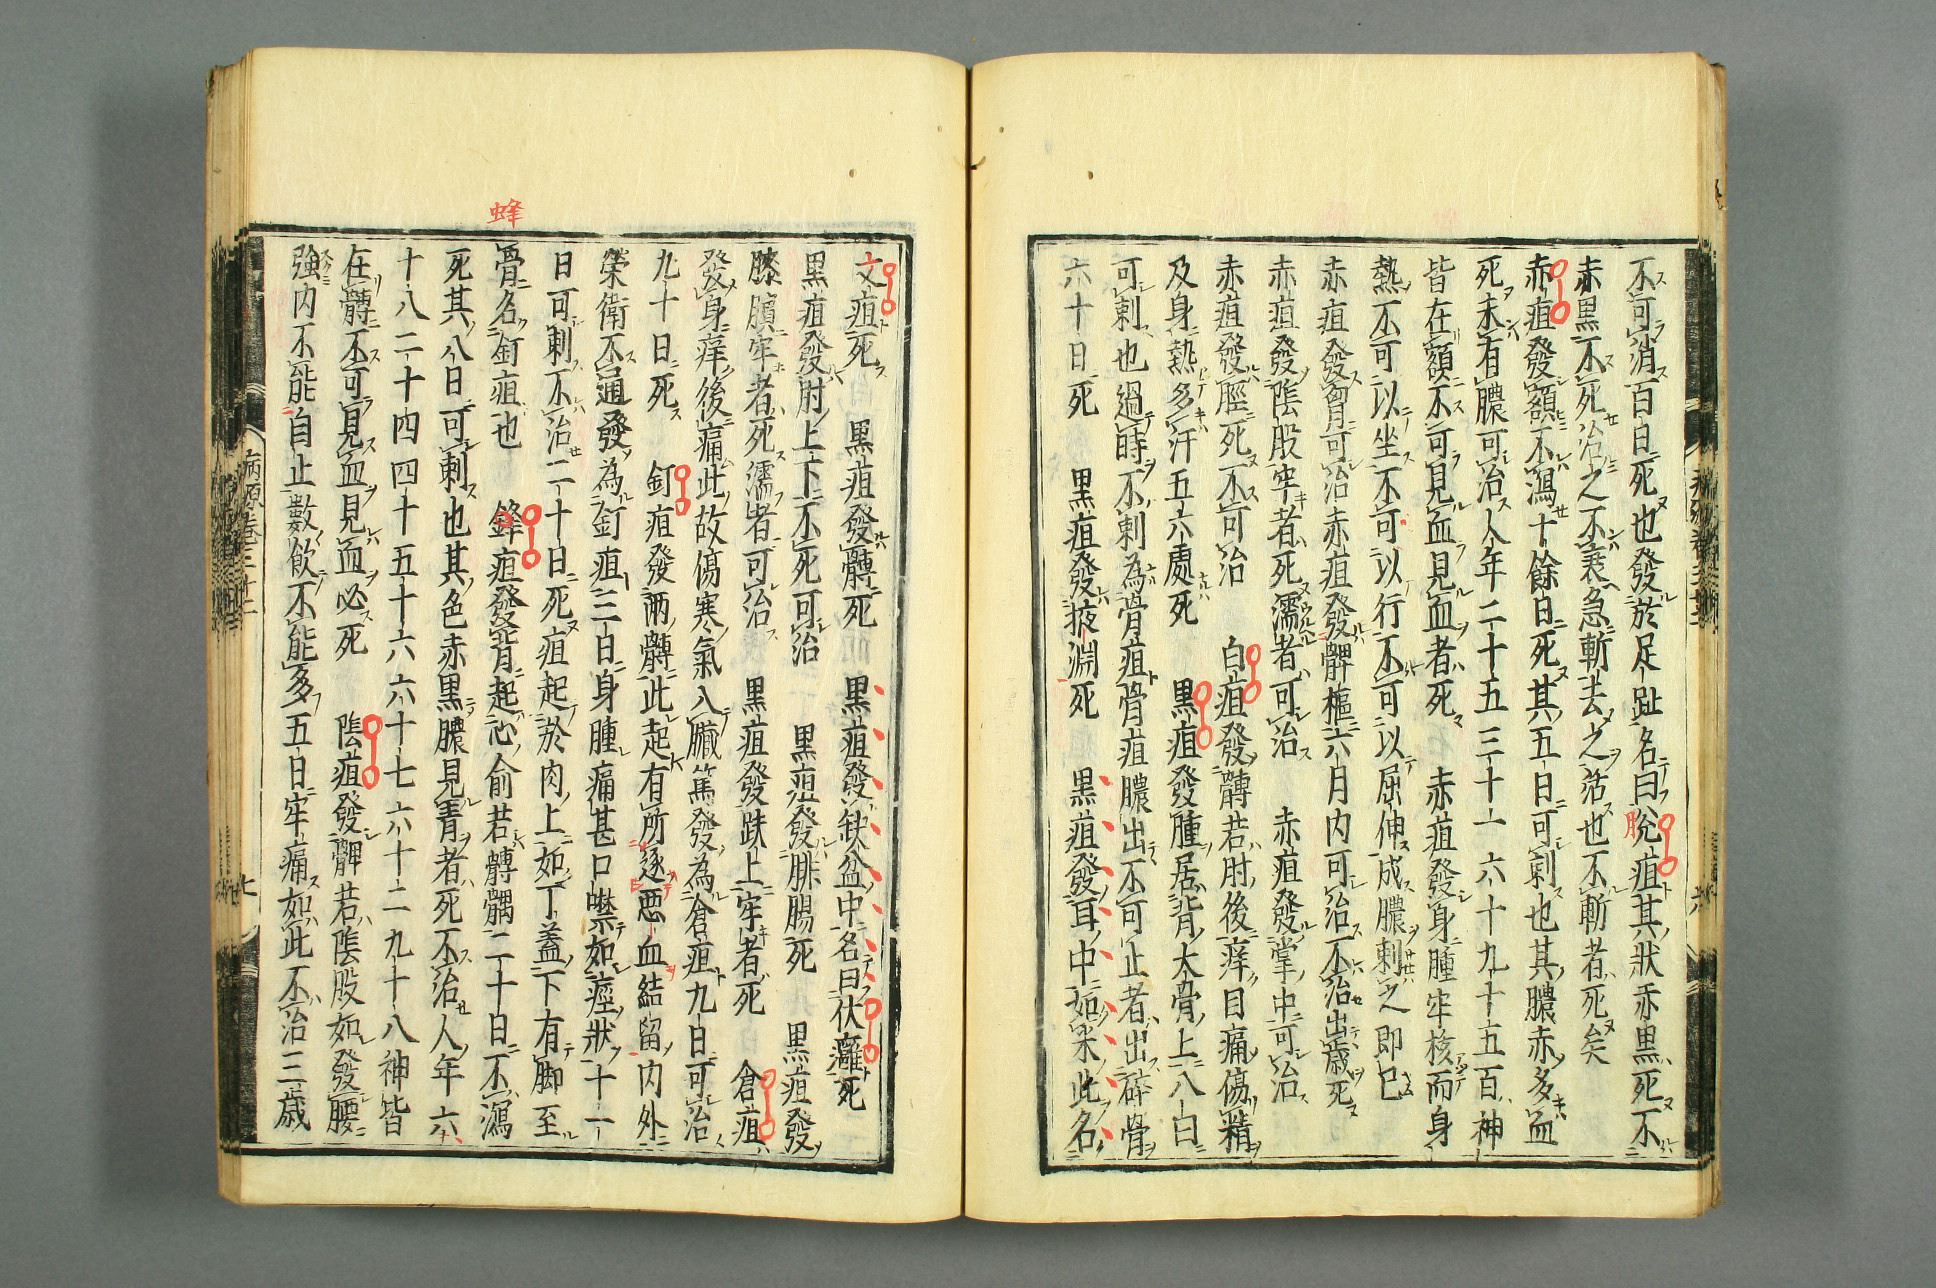 不可消百日死也發於足趾名曰兌疽其狀赤黒死不
赤黒不死治之不衰急斬去之活也不斬者死矣
赤疽發額不瀉十餘日死其五日可刺也其膿赤多血
死未有膿可治人年二十五三十一六十九十五百神
皆在額不可見血見血者死　赤疽發身腫牢核而身
熱不可以坐不可以行不可以屈伸成膿刺之即已
赤疽發胷可治赤疽發髀樞六月内可治不治出歳死
赤疽發陰股牢者死濡者可治　赤疽發掌中可治
赤疽發脛死不可治　白疽發髆若肘後痒目痛傷精
及身熱多汗五六處死　黒疽發腫居背大骨上八日
可刺也過時不刺為骨疽骨疽膿出不可止者出碎骨
六十日死　黒疽發掖淵死　黒疽發耳中如米此名
文疽死　黒疽發髆死　黒疽發缺盆中名曰伏癰死
黒疽發肘上下不死可治　黒疽發腓腸死　黒疽發
膝臏牢者死濡者可治　黒疽發趺上牢者死　倉疽
發身痒後痛此故傷寒氣入臟篤發為倉疽九日可治
九十日死　釘疽發兩髆此起有所逐悪血結留内外
榮衛不通發為釘疽三日身腫痛甚口噤如痙狀十一
日可刺不治二十日死疽起於肉上如丁蓋下有脚至
骨名釘疽也　鋒疽發背起心俞若髆髃二十日不瀉
死其八日可刺也其色赤黒膿見青者死不治人年六
十八二十四四十五十六六十七六十二九十八神皆
在髆不可見血見血必死　陰疽發髀若陰股如發腰
強内不能自止數飲不能多五日牢痛如此不治三歳
病源卷三十二
七
六
蜂